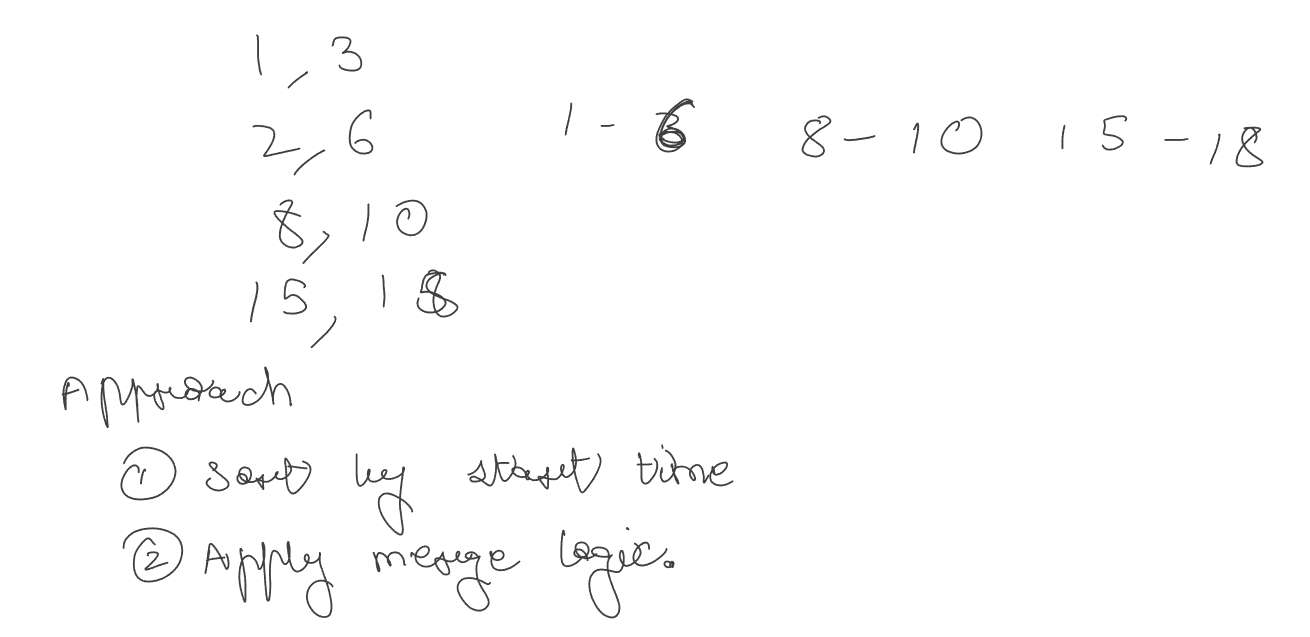 1, 3
2, 6 1 - 6 8 - 10 15 - 18
8, 10
15, 18
Approach
① Sort by start time
② Apply merge logic.